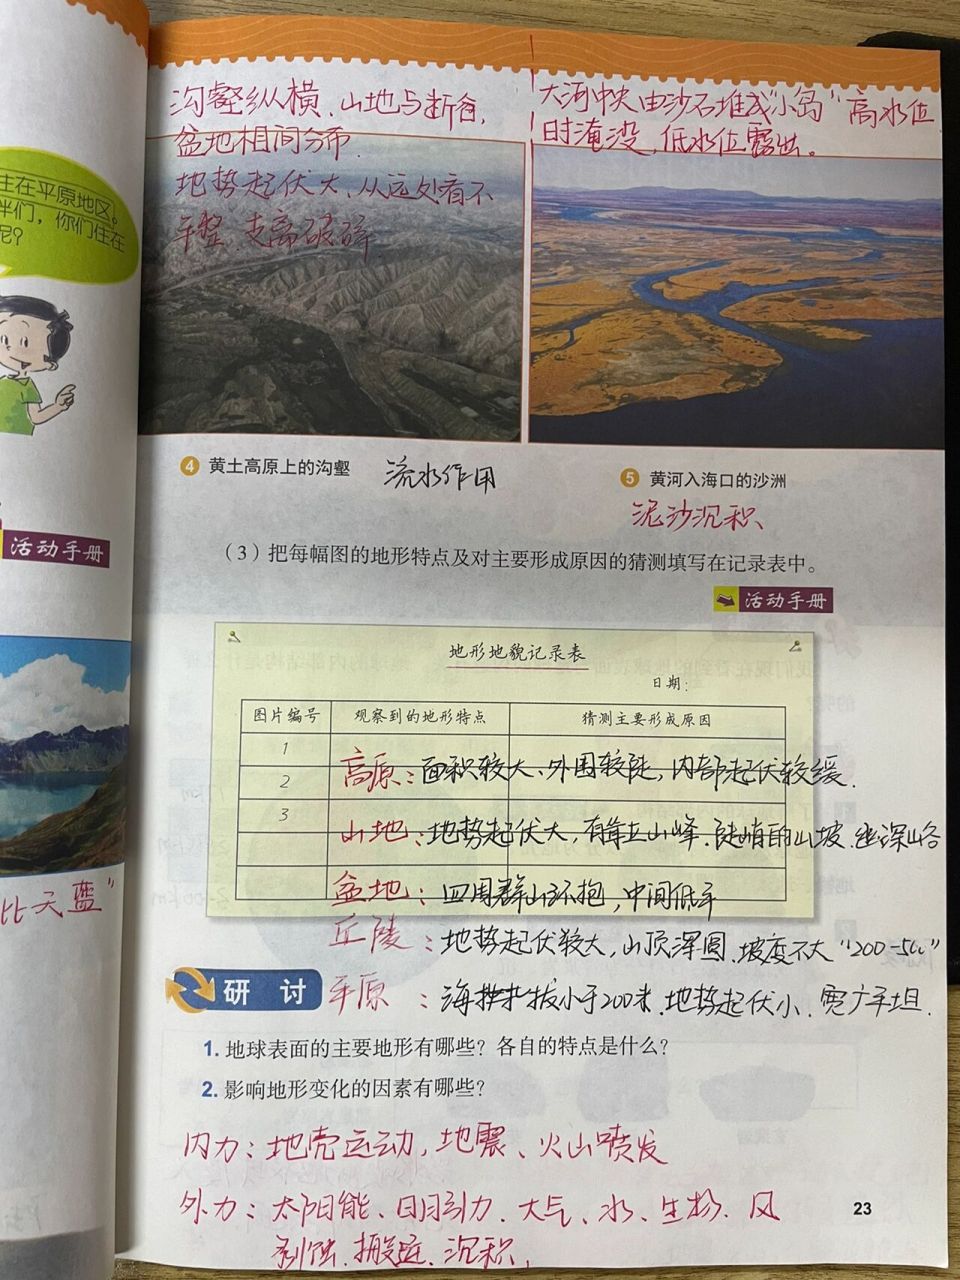 住在平原地区。
伴们，你们住在
呢？
活动手册
比天蓝”
沟壑纵横、山地与断谷，
盆地相间分布
地势起伏大、从远处看不
平整 支离破碎
大河中央由沙石堆成“小岛” 高水位
时淹没，低水位露出。
4 黄土高原上的沟壑 流水作用
5 黄河入海口的沙洲
泥沙沉积
（3）把每幅图的地形特点及对主要形成原因的猜测填写在记录表中。
活动手册
地形地貌记录表
日期：
图片编号 观察到的地形特点 猜测主要形成原因
1
高原：面积较大、外围较陡，内部起伏较缓．
2
3
山地：地势起伏大，有耸立山峰、陡峭的山坡、幽深山谷
盆地：四周群山环抱，中间低平
丘陵：地势起伏较大，山顶浑圆、坡度不大“200-500”
研 讨
平原：海拔小于200米、地势起伏小、宽广平坦．
1. 地球表面的主要地形有哪些？各自的特点是什么？
2. 影响地形变化的因素有哪些？
内力：地壳运动，地震、火山喷发
外力：太阳能、日月引力、大气、水、生物、风
剥蚀、搬运、沉积，
23